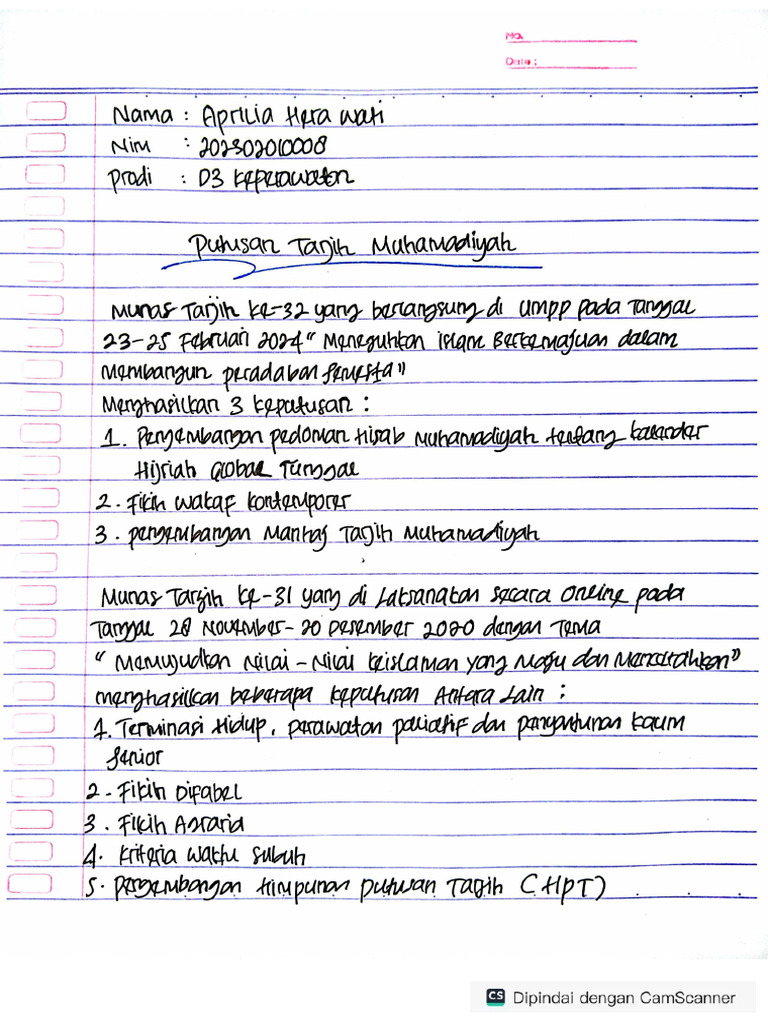 No.
Date :
Nama : Aprilia Hera Wati
Nim : 202302010008
Prodi : D3 Keperawatan
Putusan Tarjih Muhamadiyah
Munas Tarjih ke-32 yang berlangsung di UMPP pada Tanggal
23-25 Februari 2024 " Meneguhkan Islam Berkemajuan dalam
Membangun peradaban semesta"
Menghasilkan 3 keputusan :
1. Pengembangan pedoman Hisab Muhamadiyah tentang kalender
Hijriah Global Tunggal
2. Fikih wakaf kontemporer
3. pengembangan Manhaj Tarjih Muhamadiyah
Munas Tarjih ke-31 yang di Laksanakan secara Online pada
Tanggal 28 November-20 Desember 2020 dengan Tema
" Memujudkan Nilai-Nilai keislaman yang Maju dan Mencerahkan"
menghasilkan beberapa keputusan Antara Lain :
1. Terminasi Hidup, perawatan paliatif dan penyantunan kaum
senior
2. Fikih Difabel
3. Fikih Agraria
4. kriteria waktu subuh
5. pengembangan Himpunan putusan Tarjih (HPT)
CS Dipindai dengan CamScanner